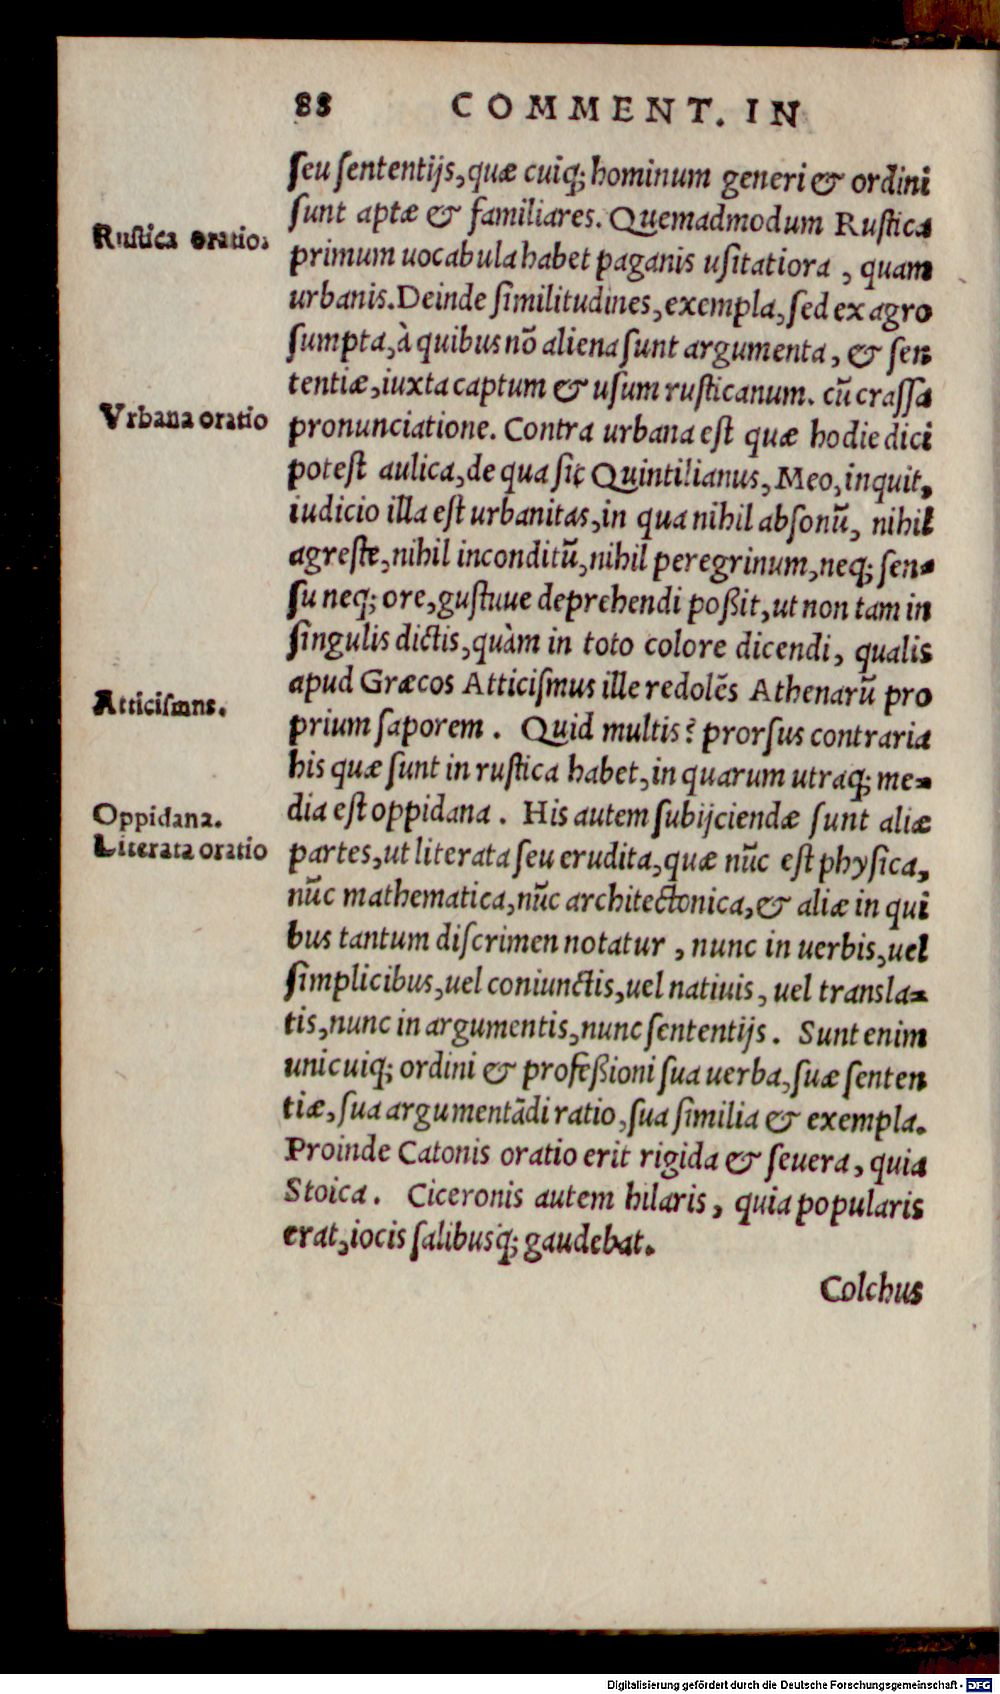 88 COMMENT. IN
seu sententijs, quæ cuiq; hominum generi & ordini
sunt aptæ & familiares. Quemadmodum Rustica
Rustica oratio.
primum uocabula habet paganis usitatiora, quam
urbanis. Deinde similitudines, exempla, sed ex agro
sumpta, à quibus nõ aliena sunt argumenta, & sen
tentiæ, iuxta captum & usum rusticanum. cũ crassa
Vrbana oratio
pronunciatione. Contra urbana est quæ hodie dici
potest aulica, de qua sic Quintilianus, Meo, inquit,
iudicio illa est urbanitas, in qua nihil absonũ, nihil
agreste, nihil inconditũ, nihil peregrinum, neq; sen-
su neq; ore, gustuue deprehendi poßit, ut non tam in
singulis dictis, quàm in toto colore dicendi, qualis
apud Græcos Atticismus ille redolẽs Athenarũ pro
Atticismns.
prium saporem. Quid multis? prorsus contraria
his quæ sunt in rustica habet, in quarum utraq; me-
dia est oppidana. His autem subijciendæ sunt aliæ
Oppidana.
Literata oratio
partes, ut literata seu erudita, quæ nũc est physica,
nũc mathematica, nũc architectonica, & aliæ in qui
bus tantum discrimen notatur, nunc in uerbis, uel
simplicibus, uel coniunctis, uel natiuis, uel transla-
tis, nunc in argumentis, nunc sententijs. Sunt enim
unicuiq; ordini & profeßioni sua uerba, suæ senten
tiæ, sua argumentãdi ratio, sua similia & exempla.
Proinde Catonis oratio erit rigida & seuera, quia
Stoica. Ciceronis autem hilaris, quia popularis
erat, iocis salibusq; gaudebat.
Colchus
Digitalisierung gefördert durch die Deutsche Forschungsgemeinschaft - DFG